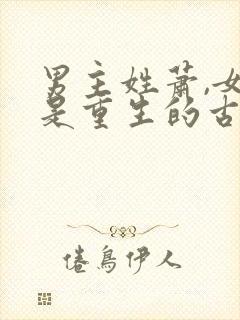 男主姓萧,女
是重生的古
倦鸟伊人